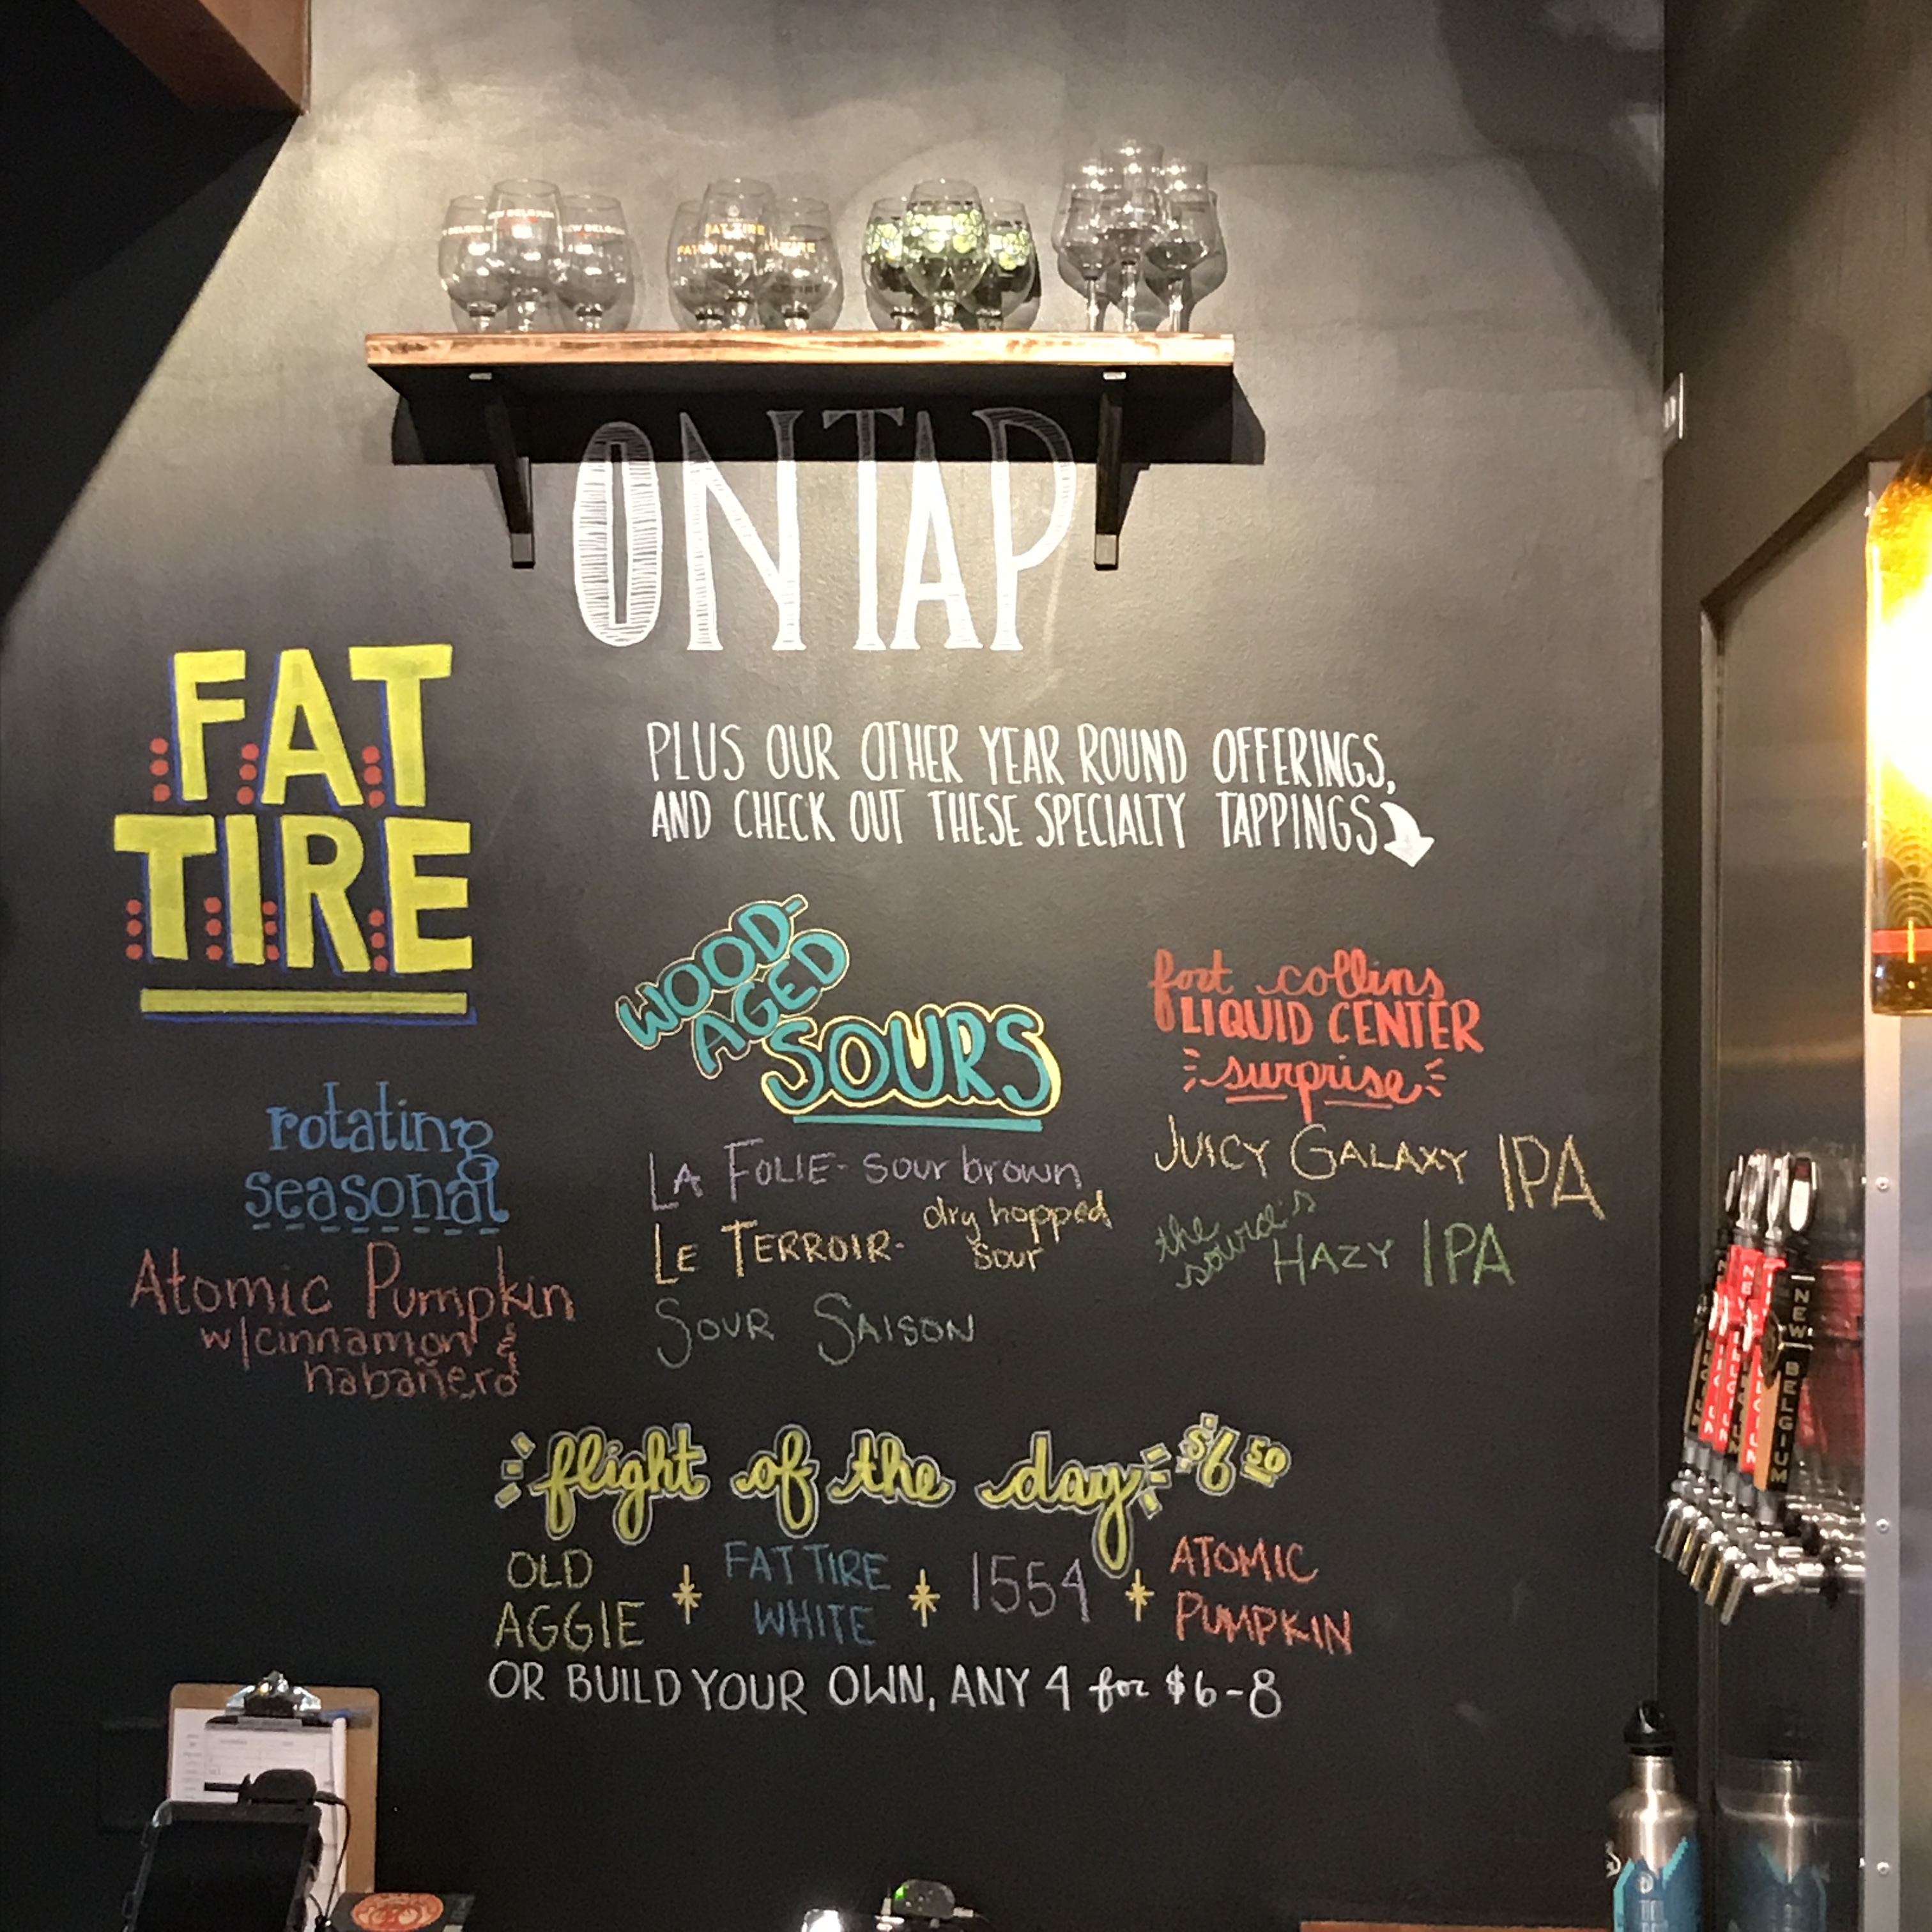 NEW BELGIUM
FAT TIRE
ON TAP
FAT
TIRE
PLUS OUR OTHER YEAR ROUND OFFERINGS,
AND CHECK OUT THESE SPECIALTY TAPPINGS
rotating
seasonal
Atomic Pumpkin
w/cinnamon &
habañero
WOOD-
AGED
SOURS
LA FOLIE- sour brown
LE TERROIR- dry hopped
sour
SOUR SAISON
fort collins
LIQUID CENTER
surprise
JUICY GALAXY IPA
the
source's
HAZY IPA
flight of the day $6 50
OLD
AGGIE
FAT TIRE
WHITE
1554
ATOMIC
PUMPKIN
OR BUILD YOUR OWN, ANY 4 for $6-8
NEW BELGIUM